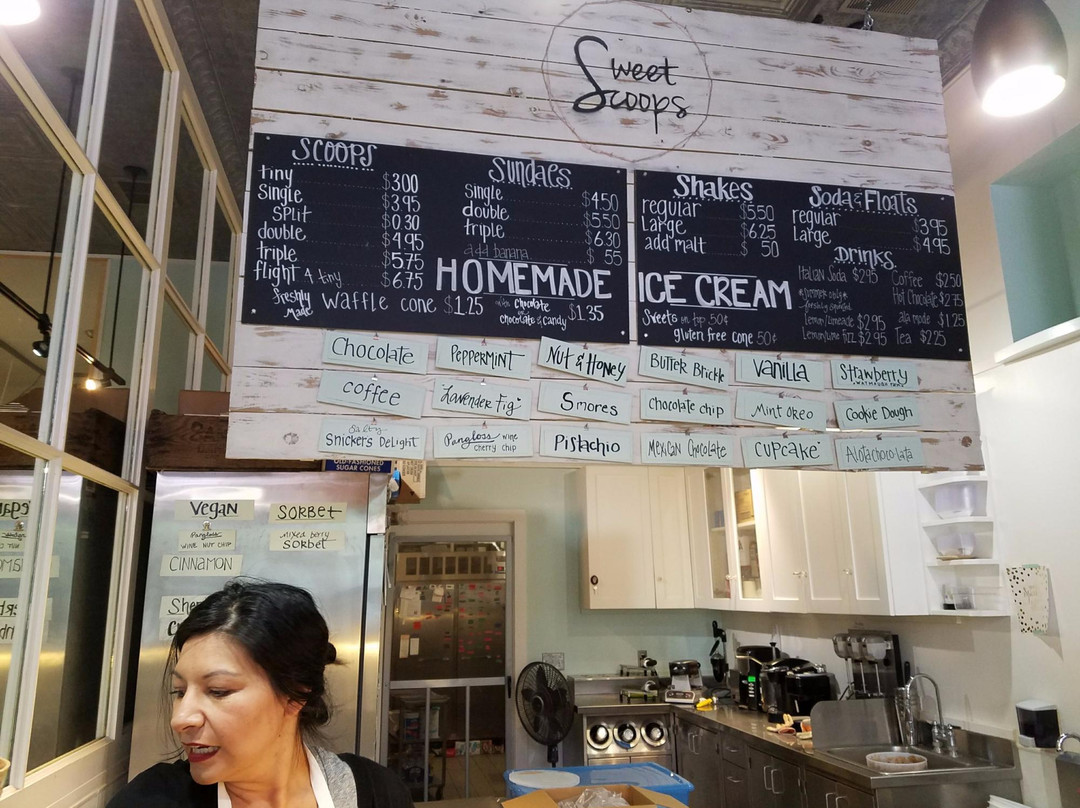 Sweet
Scoops
Scoops
tiny $3.00
Single $3.95
Split $0.30
double $4.95
triple $5.75
flight 4 tiny $6.75
freshly made Waffle cone $1.25 with chocolate or chocolate & candy $1.35
Sundaes
Single $4.50
double $5.50
triple $6.30
add banana $ 55
HOMEMADE
Shakes
regular $5.50
Large $6.25
add malt $ 50
ICE CREAM
Sweets on top 50¢
gluten free cone 50¢
Soda & Floats
regular $3.95
Large $4.95
Drinks
Italian Soda $2.95
Lemon/Limeade $2.95
Lemon/Lime fizz $2.95
Coffee $2.50
Hot Chocolate $2.75
ala mode $1.25
Tea $2.25
Chocolate
Peppermint
Nut & Honey
Butter Brickle
Vanilla
Strawberry
coffee
Lavender Fig
Smores
Chocolate chip
Mint Oreo
Cookie Dough
Salty
Snickers Delight
Pangloss wine
cherry chip
Pistachio
Mexican Chocolate
CUPCake
Alotachocolata
OLD-FASHIONED
SUGAR CONES
Vegan
Pangloss
WINE NUT CHIP
CINNAMON
Sher
SORBet
Mixed berry
SORBet